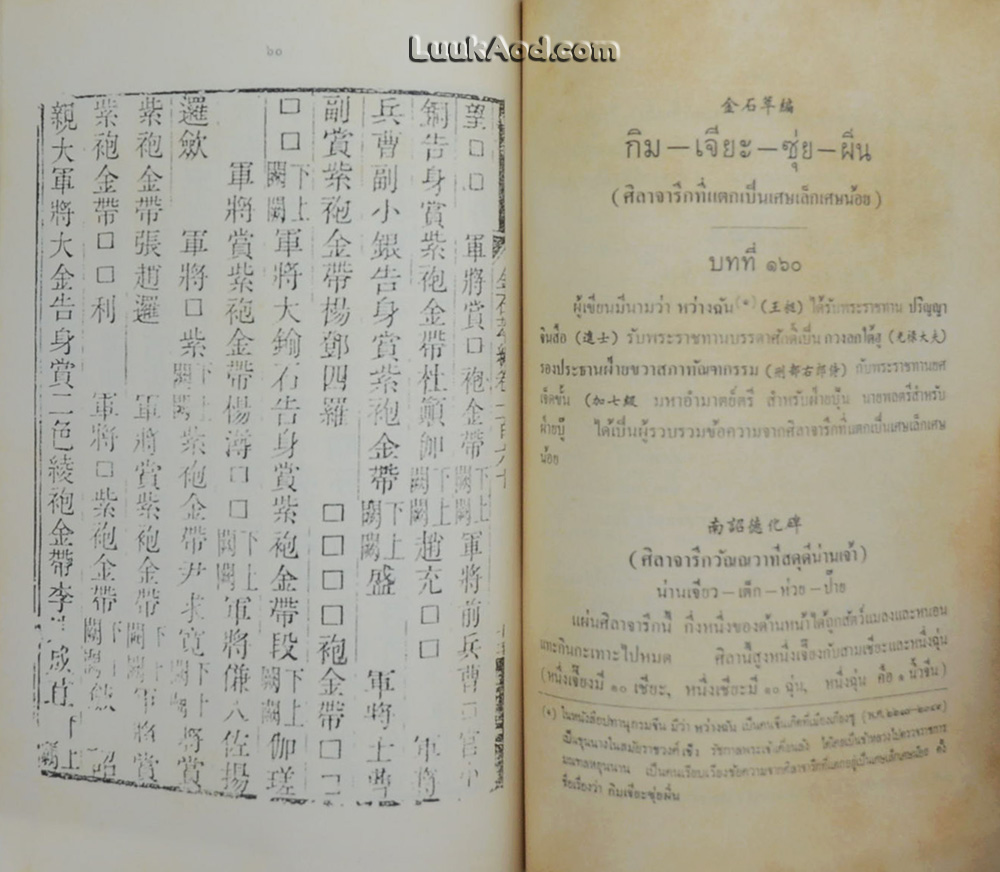 LuukAod.com
๖๐
望□□ 軍將賞□袍金帶下闕上闕軍將前兵曹□官小
銅告身賞紫袍金帶杜顛伽下闕上闕趙充□□ 軍將
兵曹副小銀告身賞紫袍金帶下闕上闕盛 軍將士曹
副賞紫袍金帶楊鄧四羅 □□□□袍金帶□□
□□下闕上闕軍將大鍮石告身賞紫袍金帶段下闕上闕伽瑳
軍將賞紫袍金帶楊溥□□下闕上闕軍將傔人佐揚
邏歛 軍將□紫下闕紫袍金帶尹求寬下闕上將賞
紫袍金帶張趙邏 軍將賞紫袍金帶下闕上闕軍將賞
紫袍金帶□□利 軍將□紫袍金帶
親大軍將大金告身賞二色綾袍金帶李
金石萃編
กิม — เจียะ — ซุ่ย — ผีน
(ศิลาจารึกที่แตกเป็นเศษเล็กเศษน้อย)
บทที่ ๑๖๐
ผู้เขียนมีนามว่า หว่างฉัน (*) (王昶) ได้รับพระราชทาน ปริญญา
จินสือ (進士) รับพระราชทานบรรดาศักดิ์เป็น กวางลกไต้ฮู (光祿大夫)
รองประธานฝ่ายขวาสภาทัณฑกรรม (刑部右郎侍) กับพระราชทานยศ
เจ็ดขั้น (加七級 มหาอำมาตย์ตรี สำหรับฝ่ายบุ๋น นายพลตรีสำหรับ
ฝ่ายบู๊ ได้เป็นผู้รวบรวมข้อความจากศิลาจารึกที่แตกเป็นเศษเล็กเศษ
น้อย
南詔德化碑
(ศิลาจารึกวัณณวาทีสดุดีน่านเจ้า)
น่านเจียว — เต็ก — ห่วย — ป้าย
แผ่นศิลาจารึกนี้ กึ่งหนึ่งของด้านหน้าได้ถูกสัตว์แมลงและหนอน
แทะกินกะเทาะไปหมด ศิลานี้สูงหนึ่งเจี๊ยงกับสามเชียะและหนึ่งฉุ่น
(หนึ่งเจี๊ยงมี ๑๐ เชียะ, หนึ่งเชียะมี ๑๐ ฉุ่น, หนึ่งฉุ่น คือ ๑ นิ้วจีน)
(*) ในหนังสือปทานุกรมจีน มีว่า หว่างฉัน เป็นคนเจ็นเกิดที่เมืองเก๊งซู
เป็นขุนนางในสมัยราชวงศ์เช็ง
มณฑลหยุนนาน เป็นคนเรียบเรียงข้อความจากศิลาจารึกที่แตกอยู่เป็นเศษเล็กเศษน้อย ตั้ง
ชื่อเรื่องว่า กิมเจียะซุ่ยผีน